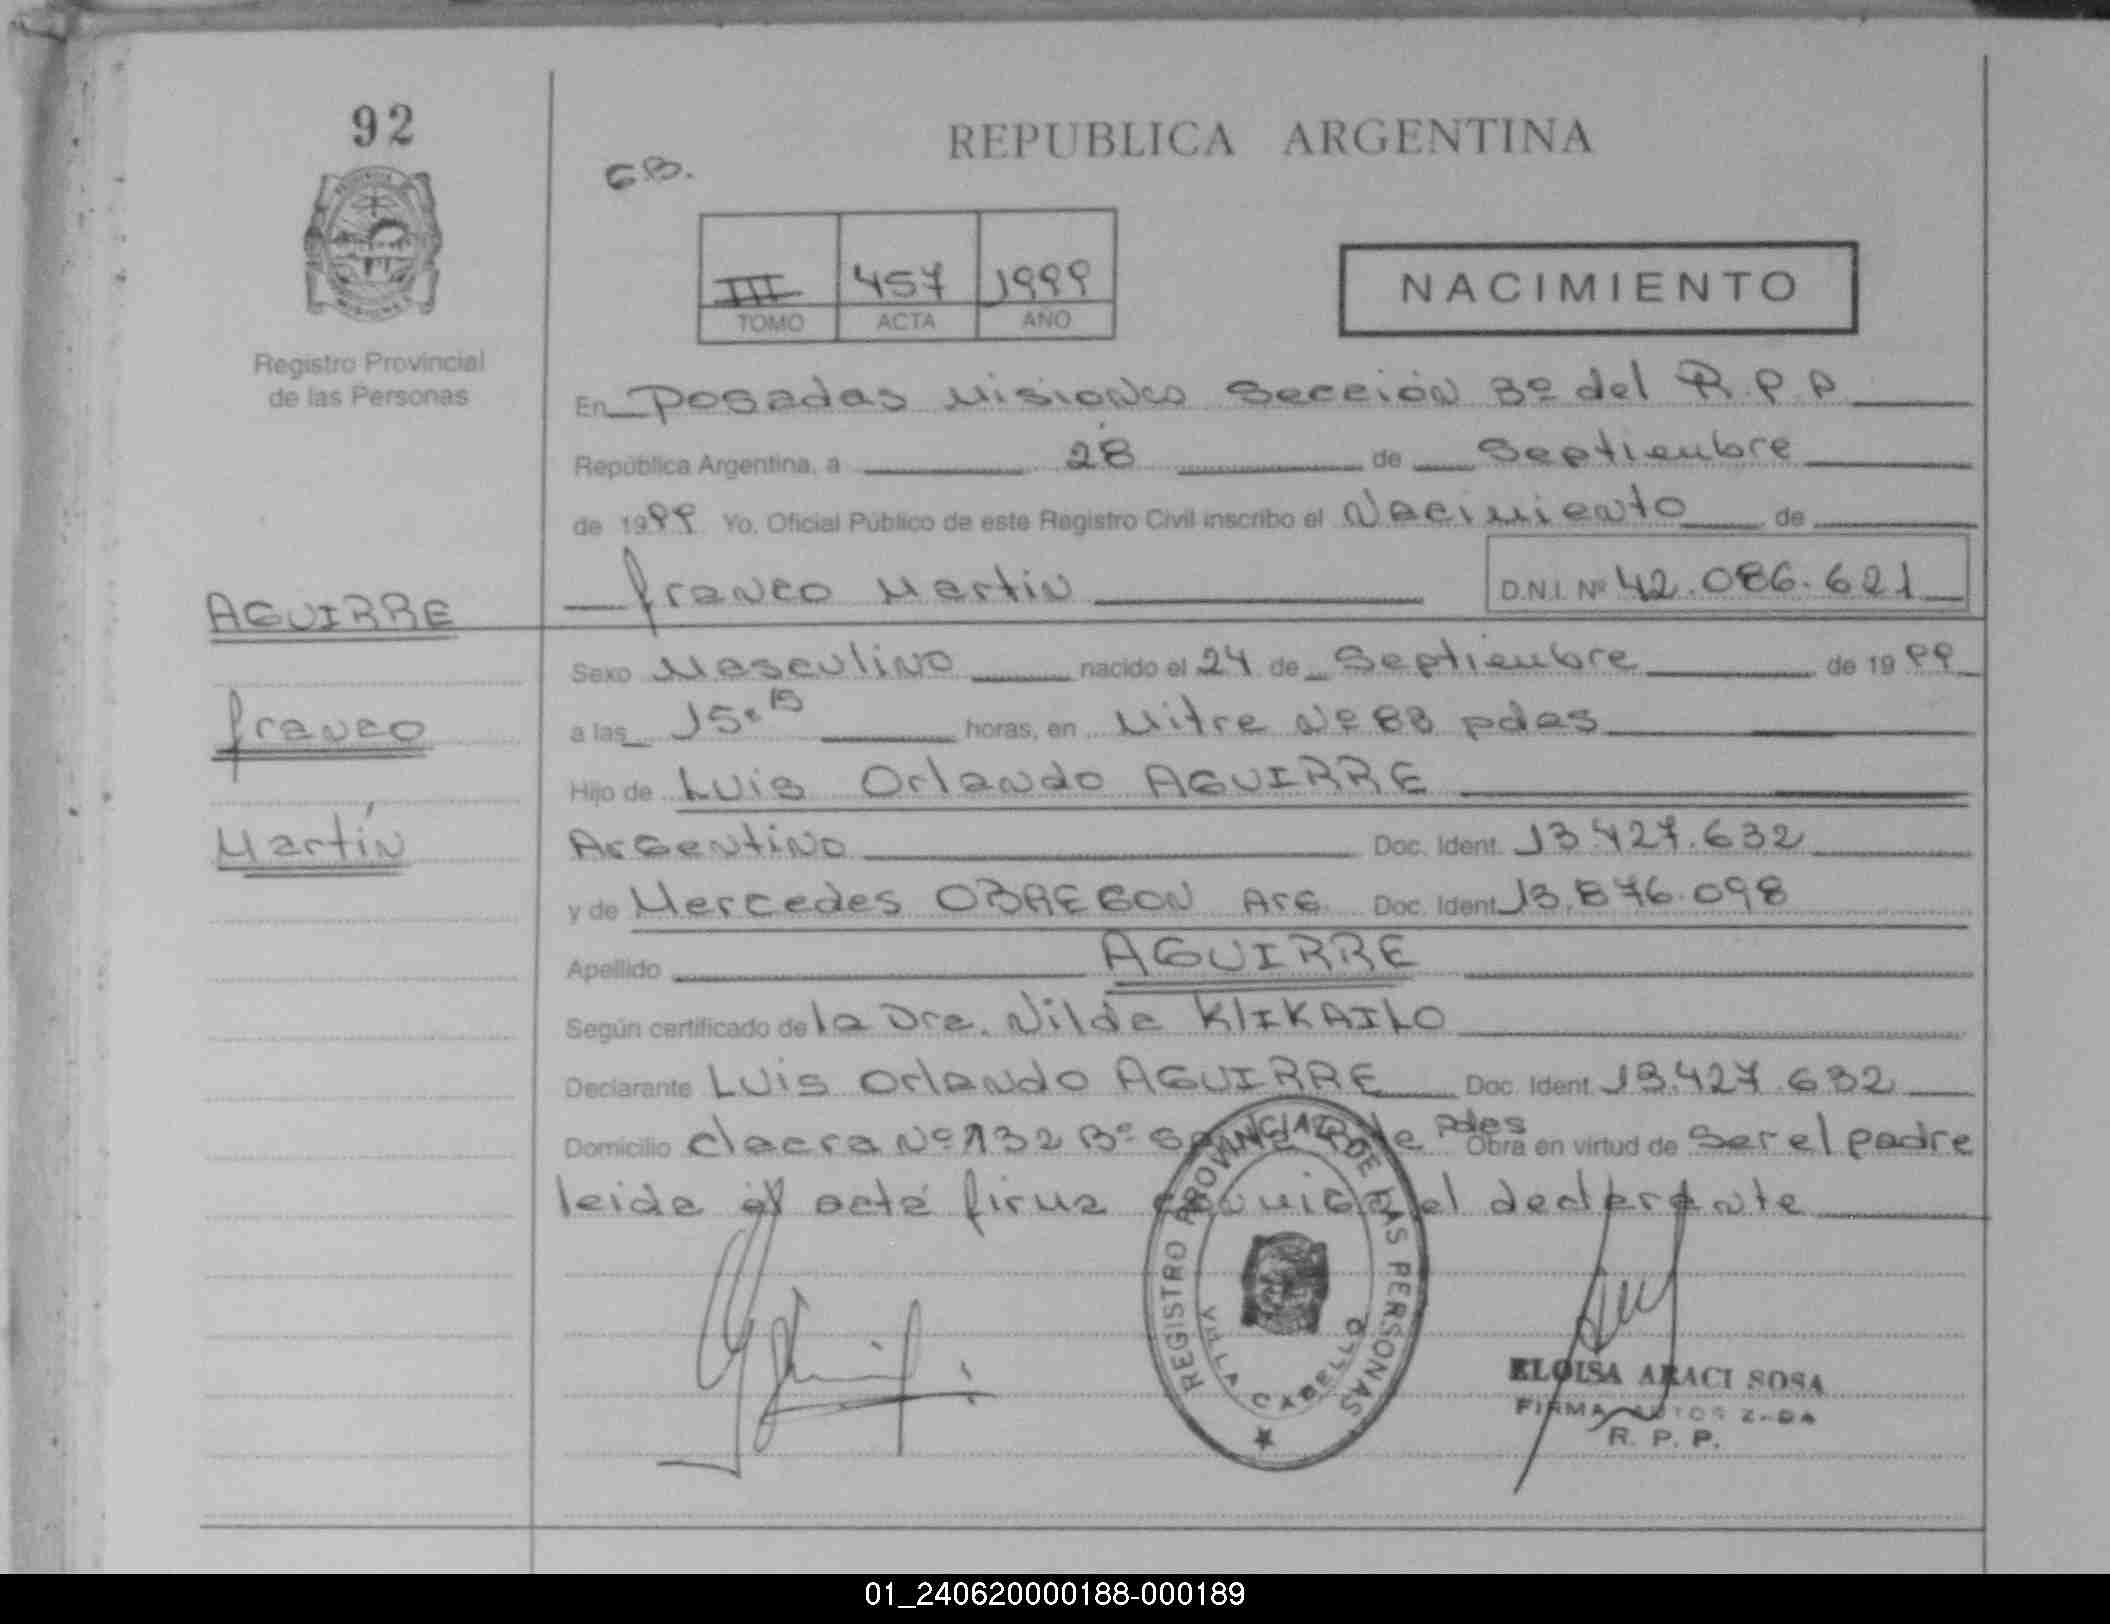 92
REPUBLICA ARGENTINA
G.B.
III 457 1999
TOMO ACTA AÑO
NACIMIENTO
Registro Provincial
de las Personas
En Posadas Misiones Sección 3º del R.P.P
República Argentina, a 28 de Septiembre
de 1999 Yo, Oficial Público de este Registro Civil inscribo el Nacimiento de
Franco Martin D.N.I. Nº 42.086.621
AGUIRRE
Franco
Martín
Sexo Masculino nacido el 24 de Septiembre de 1999
a las 15:15 horas, en Mitre Nº 88 pdas
Hijo de Luis Orlando AGUIRRE
Argentino Doc. Ident. 13.427.632
y de Mercedes OBREGON Arg. Doc. Ident. 13.876.098
Apellido AGUIRRE
Según certificado de la Dra. Nilda KLIKAILO
Declarante Luis Orlando AGUIRRE Doc. Ident. 13.427.632
Domicilio chacra Nº 132 Bº Pdas Obra en virtud de Ser el padre
leida el acta firma conmigo el declarante
REGISTRO PROVINCIAL DE LAS PERSONAS
VILLA CABELLO
ELOISA ARACI SOSA
FIRMA AUTORIZADA
R. P. P.
01_240620000188-000189